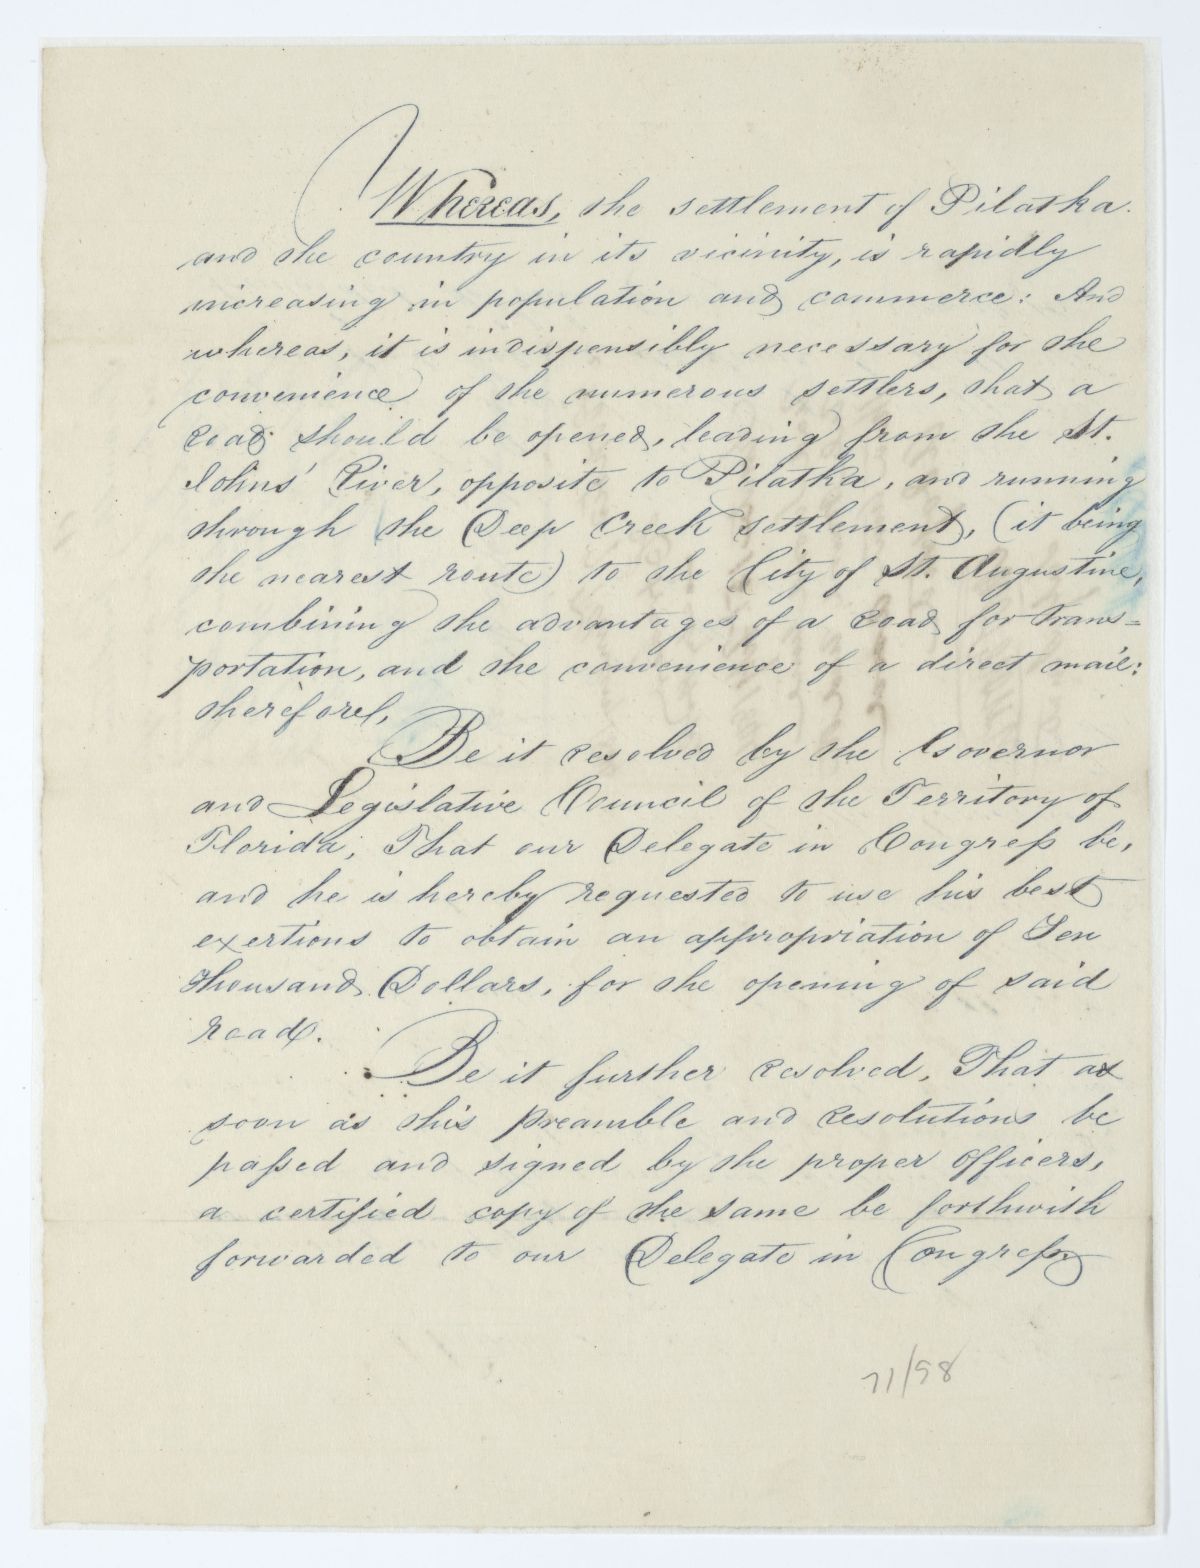 Whereas, the settlement of Pilatka.
and the country in its vicinity, is rapidly
increasing in population and commerce: And
whereas, it is indispensibly necessary for the
convenience of the numerous settlers, that a
road should be opened, leading from the St.
Johns' River, opposite to Pilatka, and running
through the Deep Creek settlement, (it being
the nearest route) to the City of St. Augustine,
combining the advantages of a road for trans=
portation, and the convenience of a direct mail:
therefore,
Be it resolved by the Governor
and Legislative Council of the Territory of
Florida, That our Delegate in Congress be,
and he is hereby requested to use his best
exertions to obtain an appropriation of Ten
thousand Dollars, for the opening of said
road.
Be it further resolved, That as
soon as this preamble and resolutions be
passed and signed by the proper officers,
a certified copy of the same be forthwith
forwarded to our Delegate in Congress
71/98